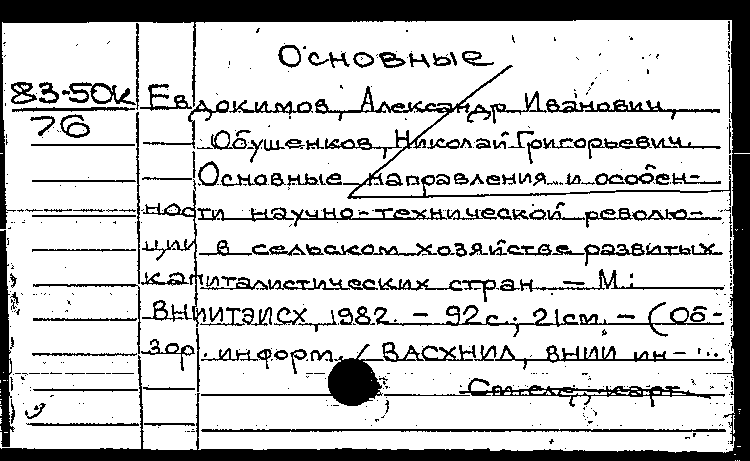 Основные
83-50К Евдокимов, Александр Иванович,
76
Обушенков, Николай Григорьевич.
Основные направления и особен-
ности научно-технической револю-
ции в сельском хозяйстве развитых
капиталистических стран. – М.:
ВНИИТЭИСХ, 1982. – 92с.; 21см. – (Об-
зор. информ. / ВАСХНИЛ, ВНИИ ин- ...
См. след. карт.